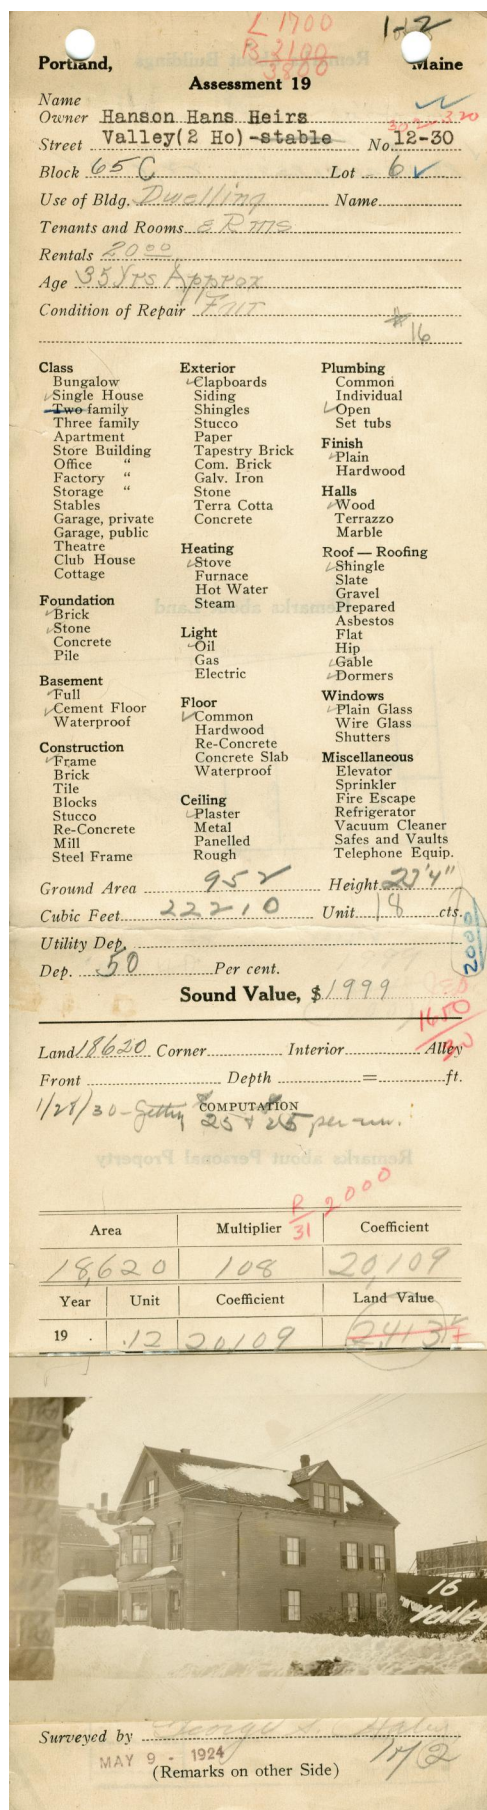 L 1700
B 2100
3800
1 of 2
Portland, Maine
Assessment 19
Name
Owner Hanson Hans Heirs
Street Valley(2 Ho)-stable No. 12-30
Block 65 C Lot 6
Use of Bldg. Dwelling Name
Tenants and Rooms 8 Rms
Rentals 20.00
Age 35 Yrs Approx
Condition of Repair Fair
#16
Class
Bungalow
Single House
Two family
Three family
Apartment
Store Building
Office "
Factory "
Storage "
Stables
Garage, private
Garage, public
Theatre
Club House
Cottage
Foundation
Brick
Stone
Concrete
Pile
Basement
Full
Cement Floor
Waterproof
Construction
Frame
Brick
Tile
Blocks
Stucco
Re-Concrete
Mill
Steel Frame
Exterior
Clapboards
Siding
Shingles
Stucco
Paper
Tapestry Brick
Com. Brick
Galv. Iron
Stone
Terra Cotta
Concrete
Heating
Stove
Furnace
Hot Water
Steam
Light
Oil
Gas
Electric
Floor
Common
Hardwood
Re-Concrete
Concrete Slab
Waterproof
Ceiling
Plaster
Metal
Panelled
Rough
Plumbing
Common
Individual
Open
Set tubs
Finish
Plain
Hardwood
Halls
Wood
Terrazzo
Marble
Roof — Roofing
Shingle
Slate
Gravel
Prepared
Asbestos
Flat
Hip
Gable
Dormers
Windows
Plain Glass
Wire Glass
Shutters
Miscellaneous
Elevator
Sprinkler
Fire Escape
Refrigerator
Vacuum Cleaner
Safes and Vaults
Telephone Equip.
Ground Area 952 Height 23'4"
Cubic Feet 22210 Unit 18 cts.
Utility Dep.
2000
Dep. 50 Per cent.
Sound Value, $ 1999
1650
30
Land 18620 Corner Interior Alley
Front Depth = ft.
COMPUTATION
1/28/30 - Getting 25 + 25 per
R 2000
31
Area Multiplier Coefficient
18,620 108 20,109
Year Unit Coefficient Land Value
19 . .12 20,109 2,413
16
Valley
Surveyed by George S.
MAY 9 - 1924
1 of 2
(Remarks on other Side)